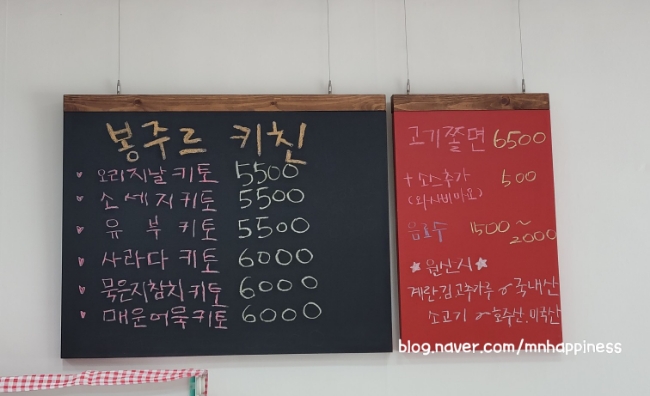 봉주르 키친
오리지날 키토 5500
소세지 키토 5500
유부 키토 5500
사라다 키토 6000
묵은지참치 키토 6000
매운어묵 키토 6000
고기쫄면 6500
+ 소스추가 500
(와사비마요)
음료수 1500~
2000
★원산지★
계란,김,고추가루 ~국내산
소고기 ~호주산,미국산
blog.naver.com/mnhappiness